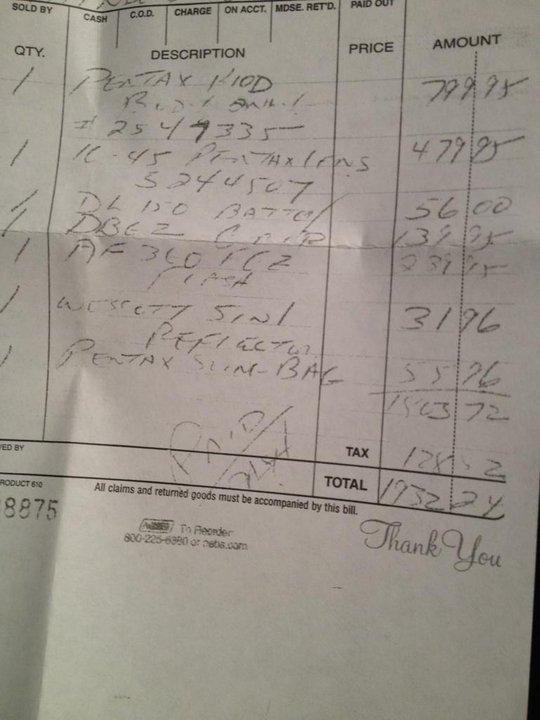 SOLD BY CASH C.O.D. CHARGE ON ACCT. MDSE. RET'D. PAID OUT
QTY. DESCRIPTION PRICE AMOUNT
1 PENTAX K10D 799 95
BODY ONLY
# 2549335
1 16-45 PENTAX LENS 479 95
5244507
1 DL 150 BATTERY 56 00
1 DBG2 GRIP 139 95
1 AF 360 FGZ 239 95
FLASH
1 WESCOTT 5 IN 1 31 96
REFLECTOR
1 PENTAX SLIM-BAG 55 96
1803 72
PAID
TAX 128 52
TOTAL 1932 24
All claims and returned goods must be accompanied by this bill.
PRODUCT 610
8875
To Reorder:
800-225-6380 or nebs.com
Thank You